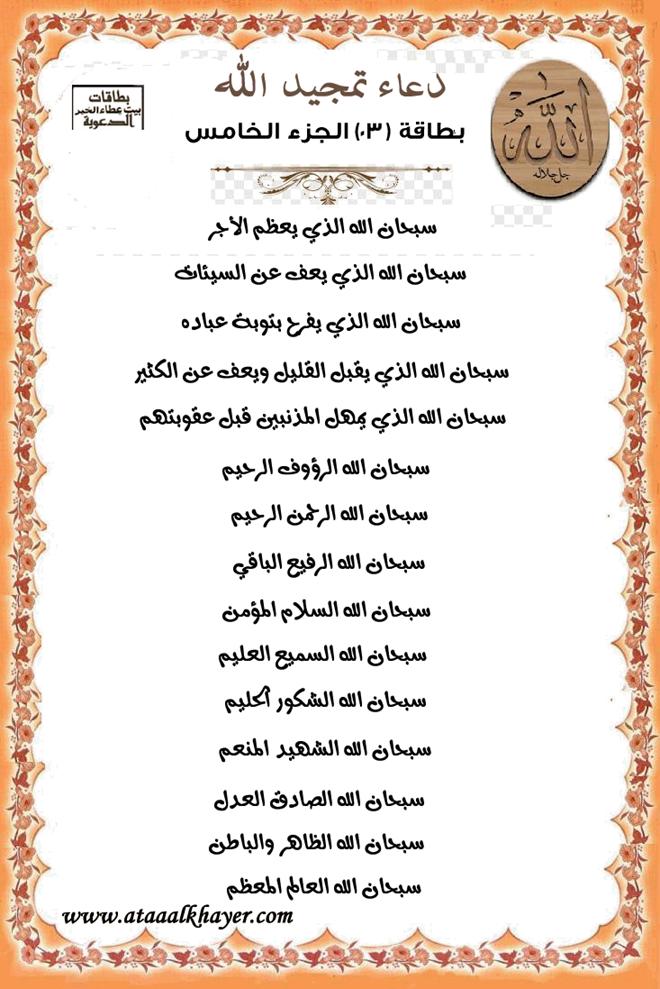 دعاء تمجيد الله
بطاقة (٠٣) الجزء الخامس
بطاقات
بيت عطاء الخير
الدعوية
الله
جل جلاله
سبحان الله الذي يعظم الأجر
سبحان الله الذي يعف عن السيئات
سبحان الله الذي يفرح بتوبة عباده
سبحان الله الذي يقبل القليل ويعف عن الكثير
سبحان الله الذي يمهل المذنبين قبل عقوبتهم
سبحان الله الرؤوف الرحيم
سبحان الله الرحمن الرحيم
سبحان الله الرفيع الباقي
سبحان الله السلام المؤمن
سبحان الله السميع العليم
سبحان الله الشكور الحليم
سبحان الله الشهيد المنعم
سبحان الله الصادق العدل
سبحان الله الظاهر والباطن
سبحان الله العالم المعظم
www.ataaalkhayer.com